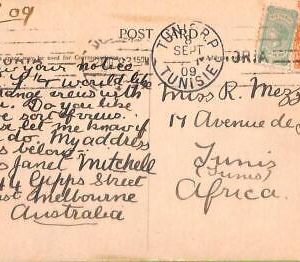 09
POST CARD
your notice
would like
change cards with
u. Do you like
sort of view
let me know if
do. My address
is below.
Janet Mitchell
Gipps Street
East Melbourne
Australia
TUNIS R.P.
SEPT
09
TUNISIE
Miss R. Mezz
17 Avenue de
Tunis
(Tunis)
Africa.